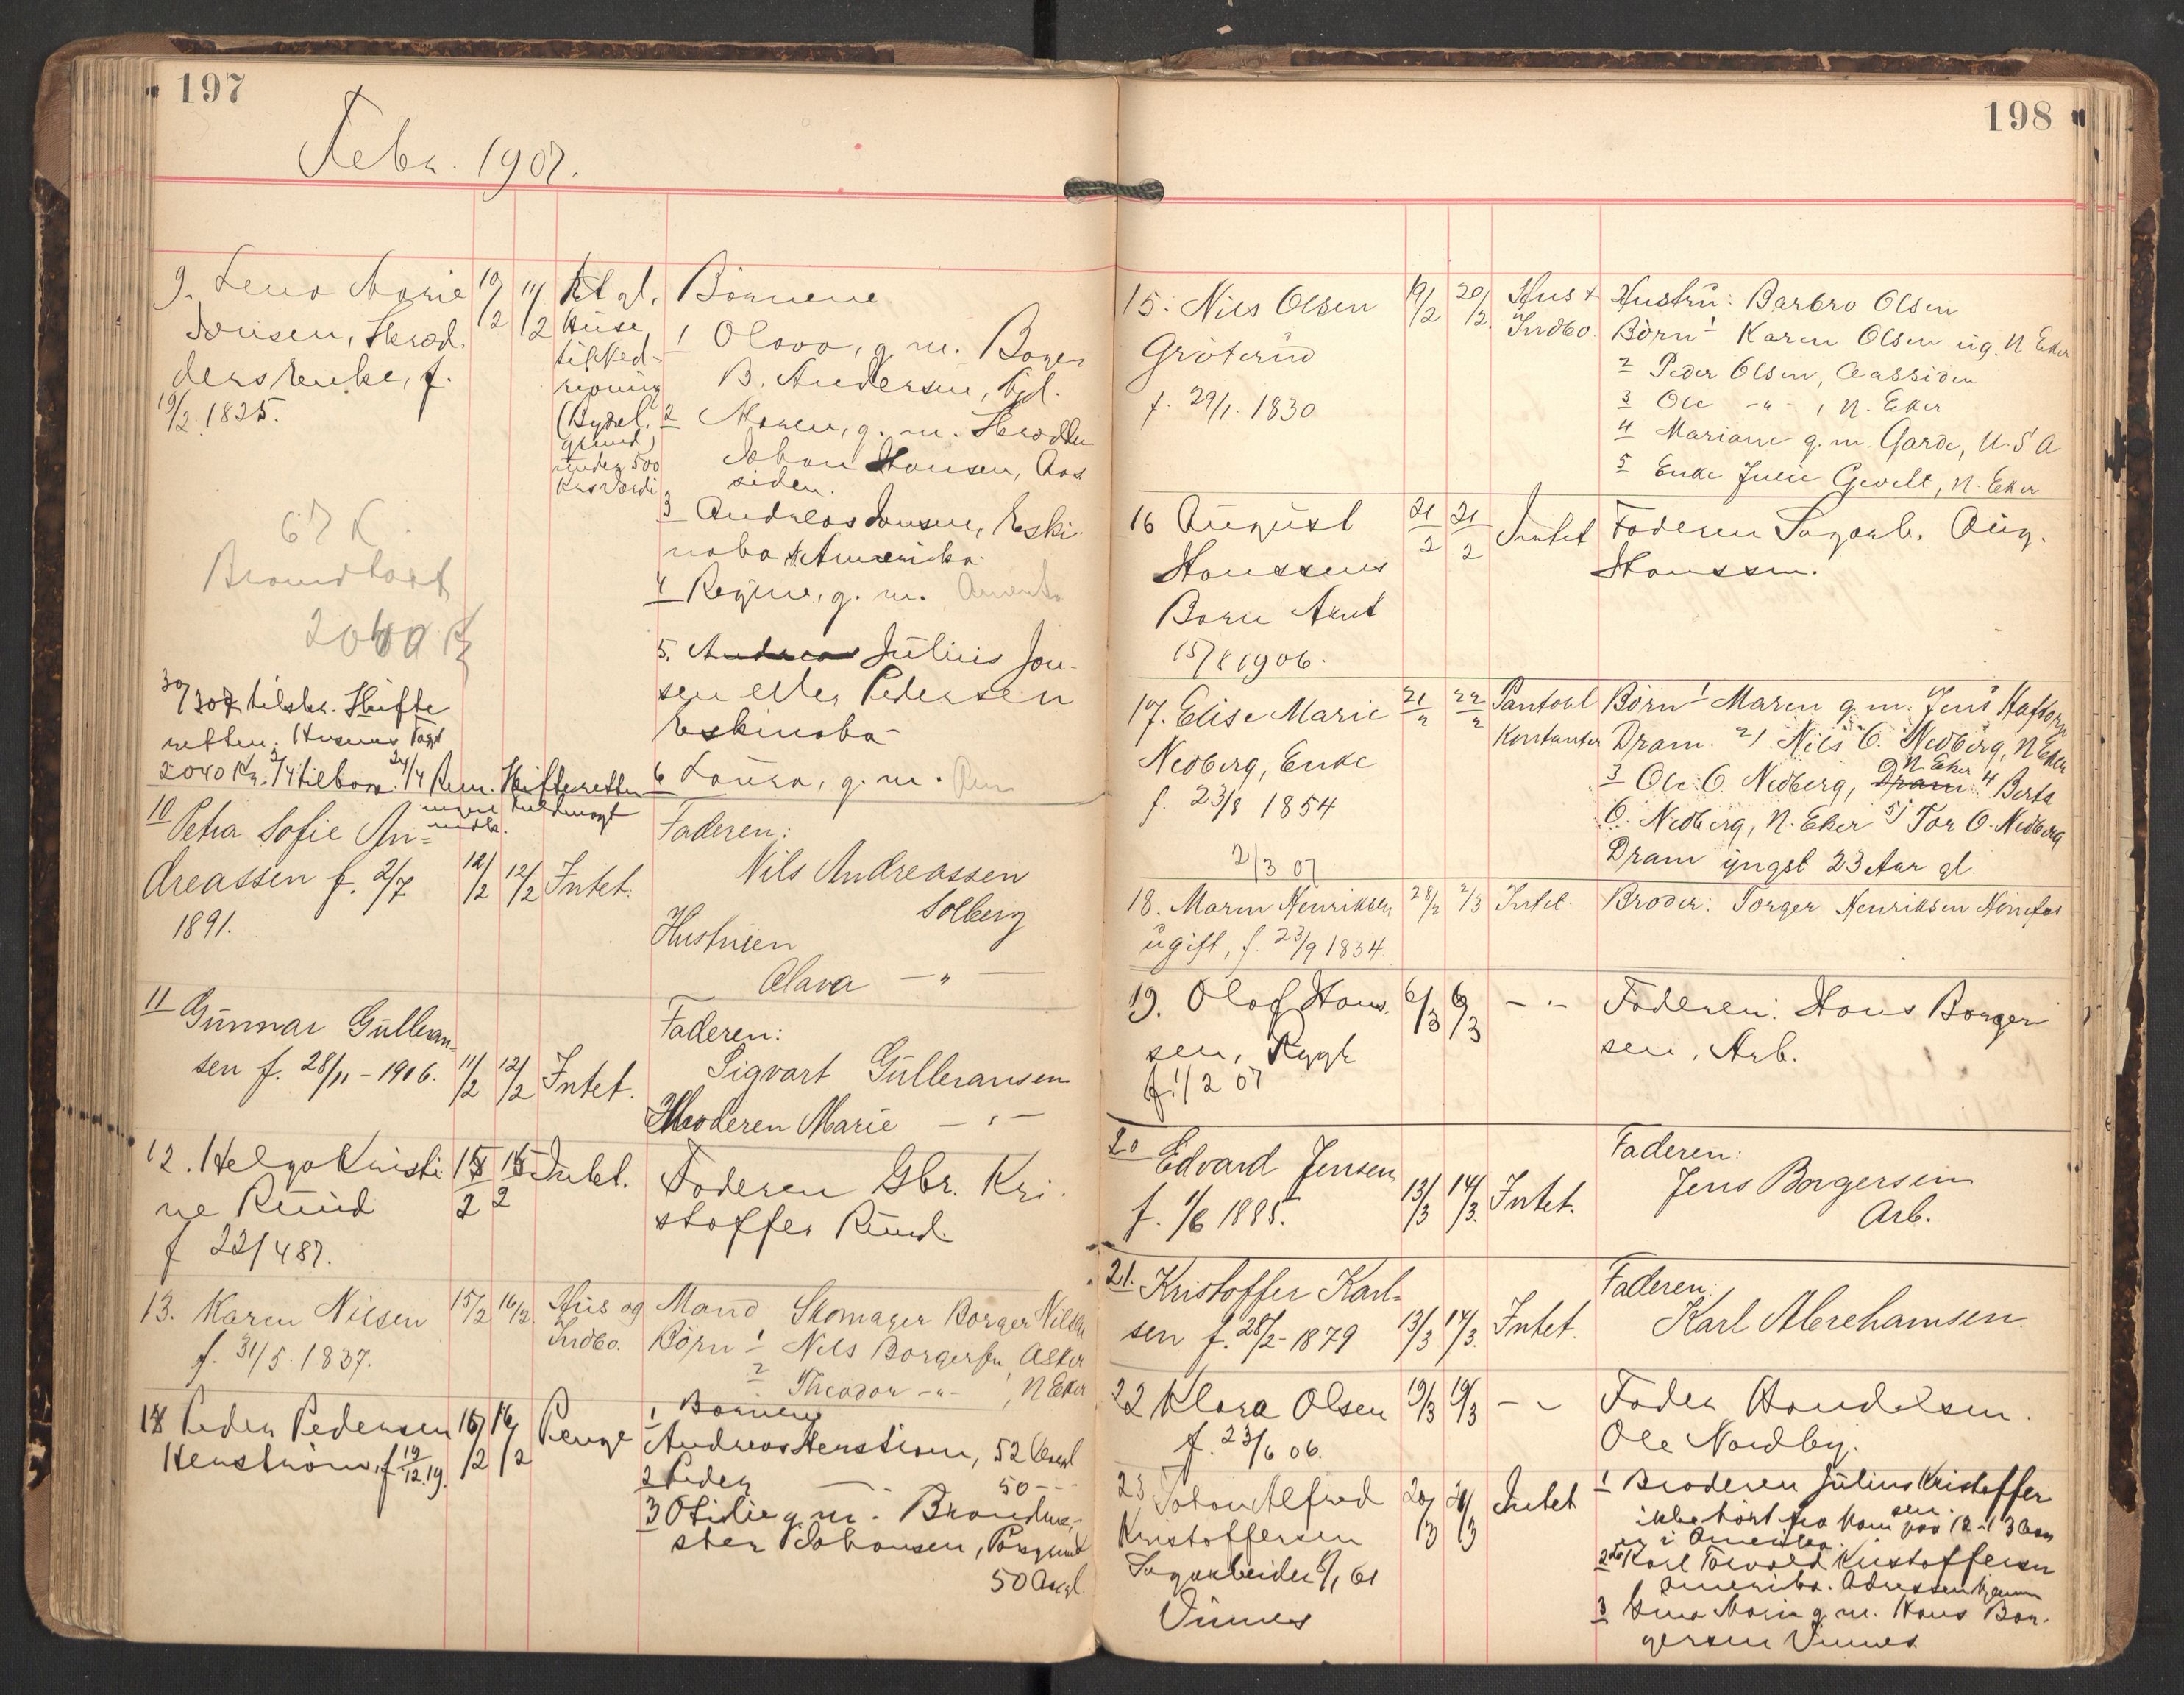 197
Febr. 1907.
9. Lena Marie
Jonsen, Skræd-
dersenke, f.
19/2 1825.
10/2
11/2
Et gl.
Huse
(Bygsel-
grund)
under 500
Krs Værdi
Børnene
1 Olava, g. m. Borger
B. Andersen,
2 Maren, g. m. Skrædder
Johan Hansen, Aas-
siden.
3 Andreas Jonsen, Eski-
noba N. Amerika
4 Regine, g. m. Amerika
5. Andreas Julius Jon-
sen eller Pedersen
Eskinoba
6 Laura, g. m.
67 K.
Brandtaxt
2040 Kr
30/3 07 tilskr. Skifte-
retten.
2040 Kr. 2/4 tilbage. 24/4 Rem. Skifteretten
10 Petra Sofie An-
dreassen f. 2/7
1891.
12/2
12/2
Intet.
Faderen:
Nils Andreassen
Solberg
Hustruen
Olava — " —
11 Gunnar Gulbran-
sen f. 28/11 - 1906.
11/2
12/2
Intet.
Faderen:
Sigvart Gulbransen
Moderen Marie — " —
12. Helga Kristi-
ne Ruud
f 22/4 87.
15/2
15/2
Intet.
Faderen Gbr. Kri-
stoffer Ruud.
13. Karen Nilsen
f. 31/5. 1837.
15/2
16/2
Hus og
Indbo.
Mand Skomager Borger Nilsen
Børn 1 Nils Borgersen Asker
2 Theodor - " - , N Eker
14 Peder Pedersen
Henstrøm, f 19/12.19.
16/2
16/2
Penge
Børnene
1 Andreas Henstrøm, 52 Aar gl
2 Peder — 50 - -
3 Otilie g. m. Brandme-
ster Johansen, Porsgrund
50 Aar gl.
198
15. Nils Olsen
Grøterud
f. 29/1. 1830
19/2
20/2.
Hus +
Indbo.
Hustru: Barbro Olsen
Børn 1 Karen Olsen ug. N Eker
2 Peder Olsen, Aassiden
3 Ole - " - , N. Eker
4 Mariane g. m. Garde, U. S A
5 Enke Julie Gevelt, N. Eker
16 August
Hanssens
Barn Arnt
15/8 1906.
21/2
21/2
Intet
Faderen Sagarb. Aug.
Hanssen.
17. Elise Marie
Nedberg, Enke
f. 23/8 1854
2/3 07
21/2
22/2
Pantobl
Kontanter
Børn 1 Maren g. m. Jens
Dram. 2) Nils O. Nedberg, N Eker
3 Ole O. Nedberg, Dram N Eker 4 Berta
O. Nedberg, N. Eker 5) Tor O. Nedberg
Dram yngst 23 Aar gl.
18. Maren Henriksen
ugift, f. 23/9 1834.
28/2
2/3
Intet.
Broder: Torger Henriksen Hønefos
19. Olaf Han-
sen, Rygh
f. 1/2 07
6/3
6/3
- " -
Faderen: Hans Borger
sen, Arb.
20 Edvard Jensen
f. 1/6 1885.
13/3
14/3.
Intet.
Faderen:
Jens Borgersen
Arb.
21. Kristoffer Karl-
sen f. 28/2 - 1879
13/3
14/3.
Intet.
Faderen:
Karl Abrehamsen.
22 Klara Olsen
f. 23/6 06.
19/3
19/3
- " -
Fader Handelsm.
Ole Nordby.
23 Johan Alfred
Kristoffersen
Sagarbeider 8/1 61
Vinnes
20/3
21/3
Intet
1 Broderen Julius Kristoffer
sen.
ikke hørt fra ham paa 12-13 Aar
er i Amerika.
2 Karl Torvald Kristoffersen
Amerika. Adressen hjemme
3 Lina Marie g. m. Hans Bor-
gersen Vinnes